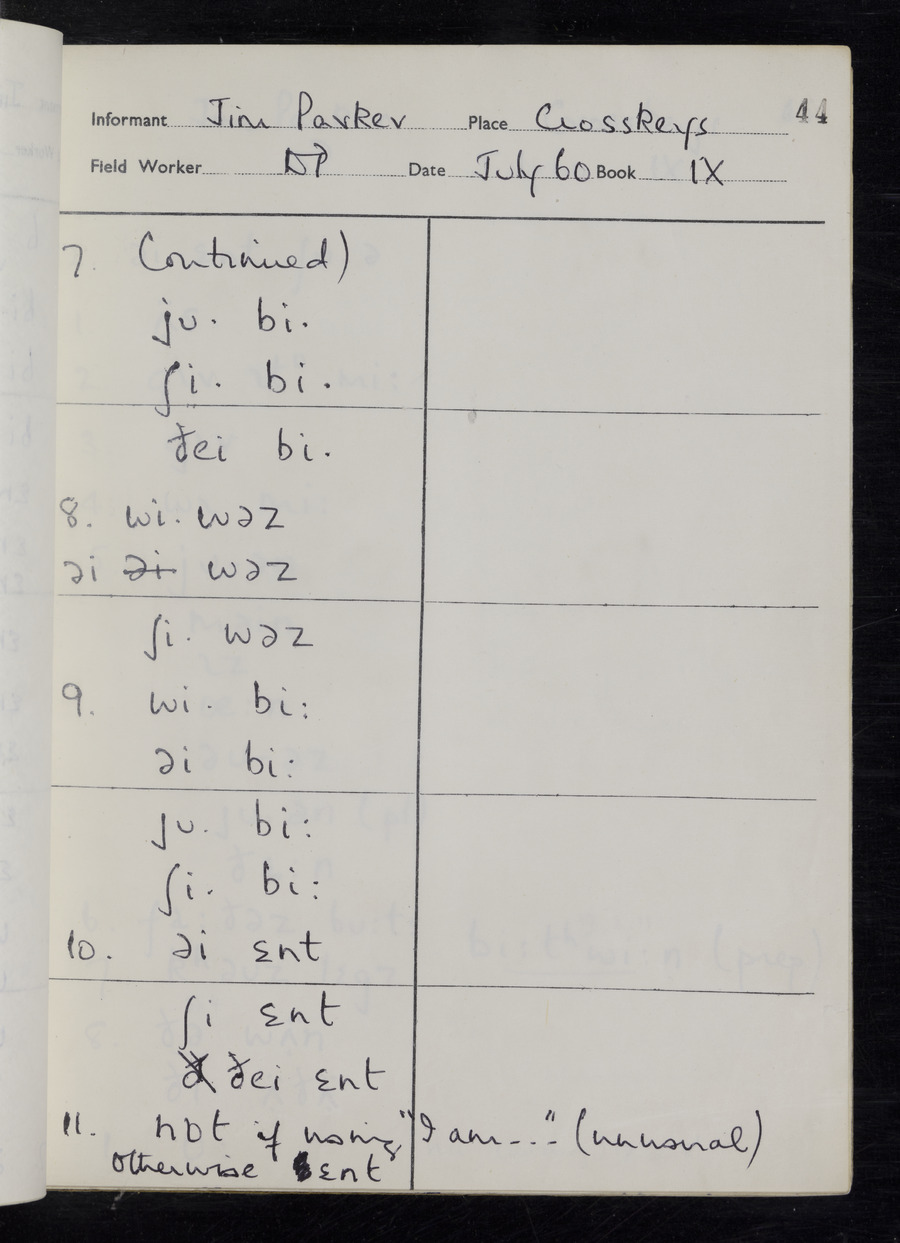 Informant Jim Parker Place Crosskeys 44
Field Worker DP Date July 60 Book IX
7. Continued)
ju· bi·
ʃi· bi·
ðei bi·
8. wi· wəz
əi əi wəz
ʃi· wəz
9. wi· bi:
əi bi:
ju· bi:
ʃi· bi:
10. əi ɛnt
ʃi ɛnt
ð ðei ɛnt
11. not if using "I am---" (unusual)
otherwise "ɛnt"